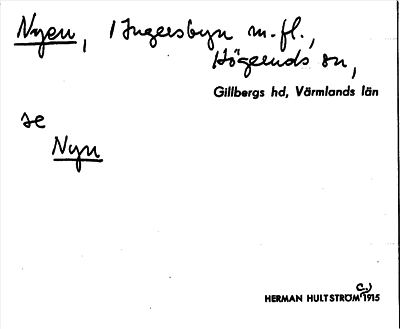 Nyen, / Ingersbyn m.fl.,
Högeruds sn,
Gillbergs hd, Värmlands län
se
Nyn
HERMAN HULTSTRÖM c.) 1915